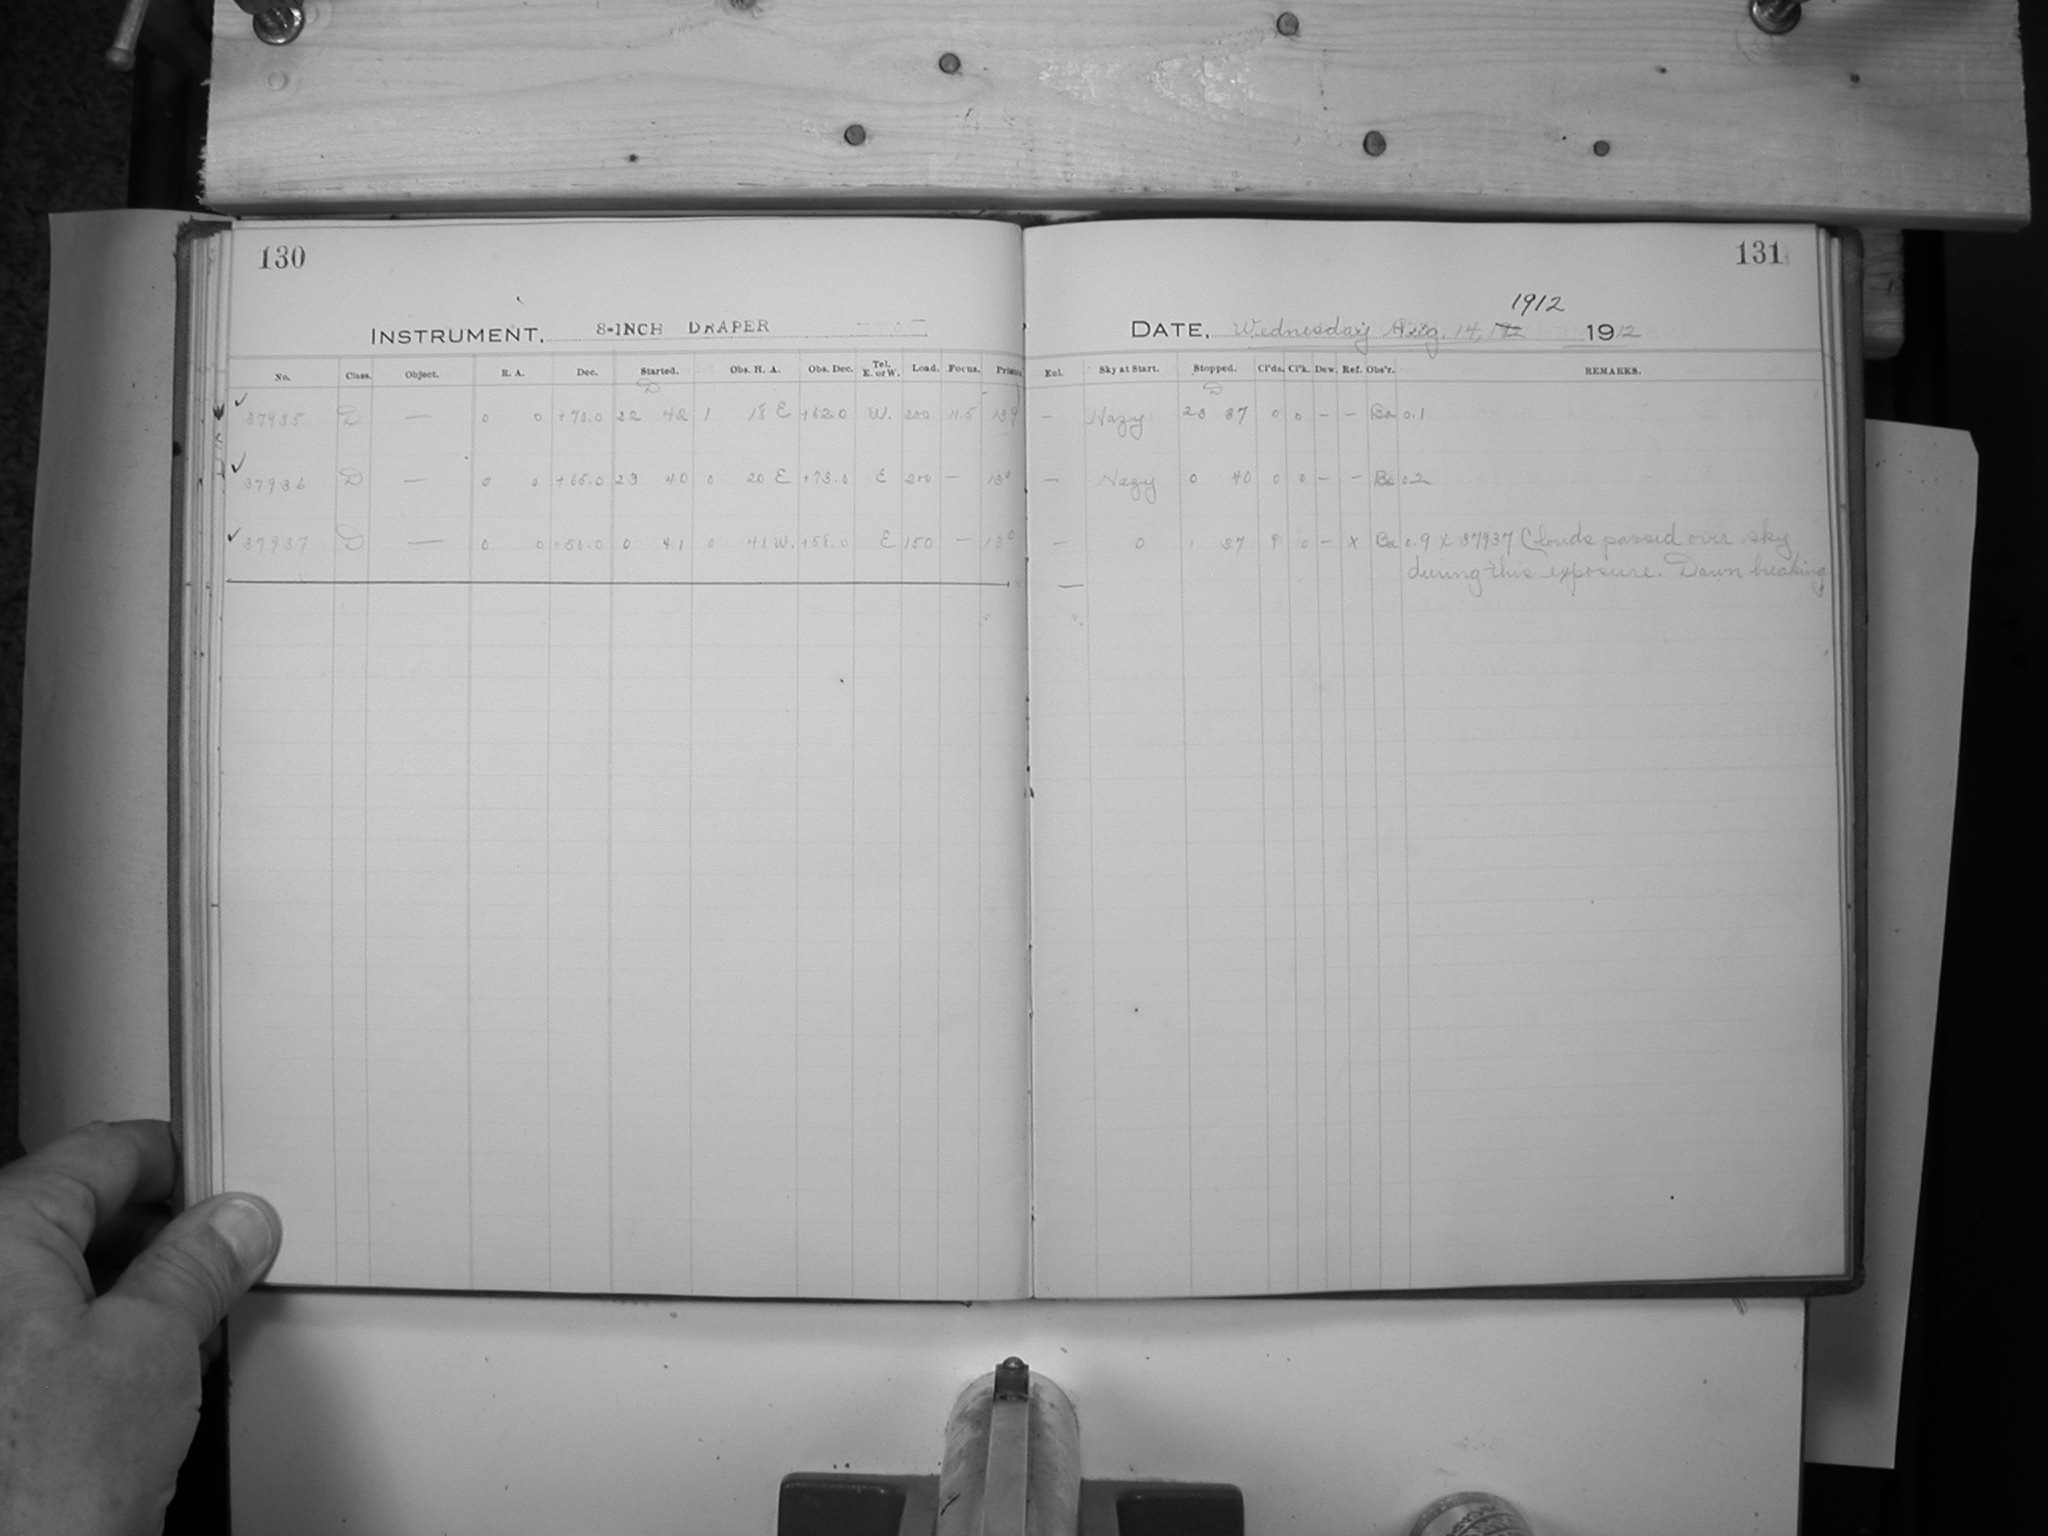 130
131
1912
INSTRUMENT, 8-INCH DRAPER
DATE, Wednesday Aug. 14, 1912
No. Class. Object. R. A. Dec. Started. Obs. H. A. Obs. Dec. Tel. E. or W. Load. Focus. Prisms
Enl. Sky at Start. Stopped. Cl'ds. Cl'k. Dew. Ref. Obs'r. REMARKS.
D D
37935 D — 0 0 22 42 1 18 E +62.0 W. 200 11.5
— Hazy 23 37 0 0 — — Ba 0.1
37936 D — 0 0 23 40 0 20 E +73.0 E 200 —
— Hazy 0 40 0 0 — — Ba 0.2
37937 D — 0 0 0 41 0 41 W. E 150 —
— 0 1 37 9 0 — x Ba 0.9 x 37937 Clouds passed over sky
during this exposure. Dawn breaking